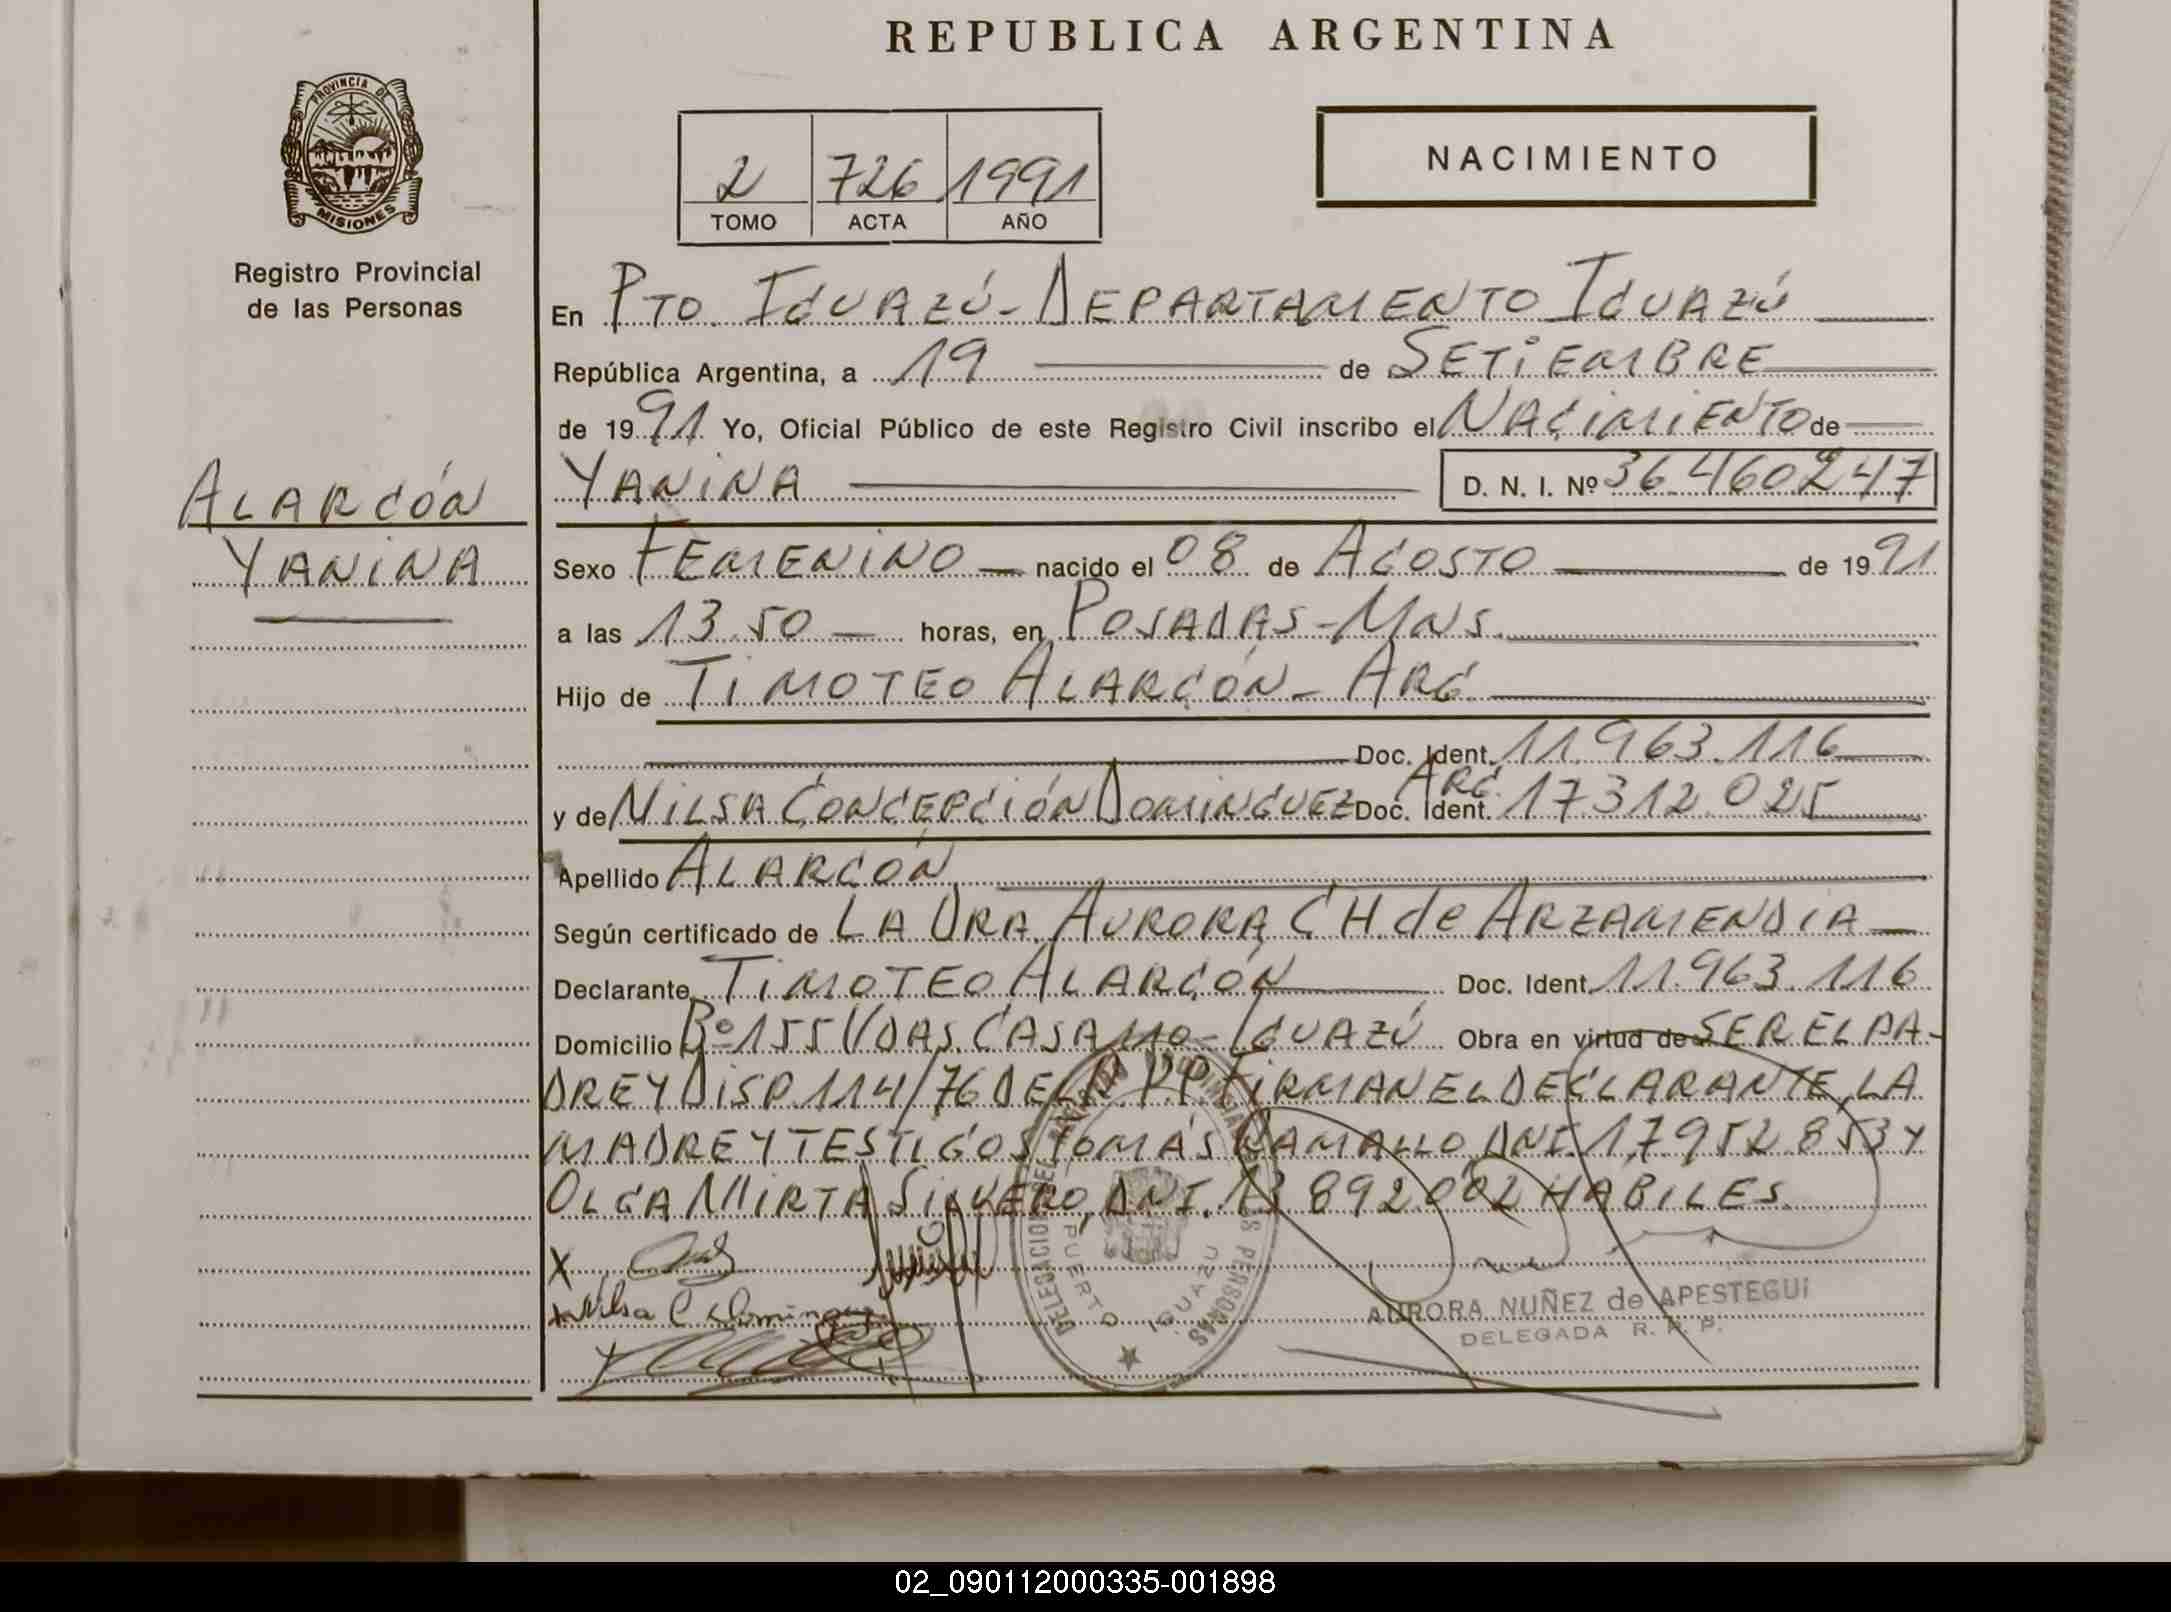 REPUBLICA ARGENTINA
PROVINCIA DE
MISIONES
Registro Provincial
de las Personas
2 726 1991
TOMO ACTA AÑO
NACIMIENTO
En PTO. IGUAZÚ - DEPARTAMENTO IGUAZÚ
República Argentina, a 19 de SETIEMBRE
de 1991 Yo, Oficial Público de este Registro Civil inscribo el NACIMIENTO de
YANINA D. N. I. Nº 36.460247
ALARCÓN
YANINA
Sexo FEMENINO nacido el 08 de AGOSTO de 1991
a las 13.50 horas, en POSADAS - MNS.
Hijo de TIMOTEO ALARCÓN - ARG.
Doc. Ident. 11.963.116
y de NILSA CONCEPCIÓN DOMINGUEZ ARG. Doc. Ident. 17.312.025
Apellido ALARCÓN
Según certificado de LA DRA. AURORA CH. de ARZAMENDIA
Declarante TIMOTEO ALARCÓN Doc. Ident. 11.963.116
Domicilio Bº 155 VDAS. CASA 110 - IGUAZÚ Obra en virtud de SER EL PA-
DRE Y DISP. 114/76 DEL R.P.P. FIRMAN EL DECLARANTE, LA
MADRE Y TESTIGOS TOMÁS RAMALLO DNI. 17.952.853 Y
OLGA MIRTA SILVERO, DNI. 13.892.002 HABILES.
X
x Nilsa C Dominguez
DELEGACION DEL REGISTRO PROVINCIAL DE LAS PERSONAS
PUERTO IGUAZU
AURORA NUÑEZ de APESTEGUI
DELEGADA R. P. P.
02_090112000335-001898